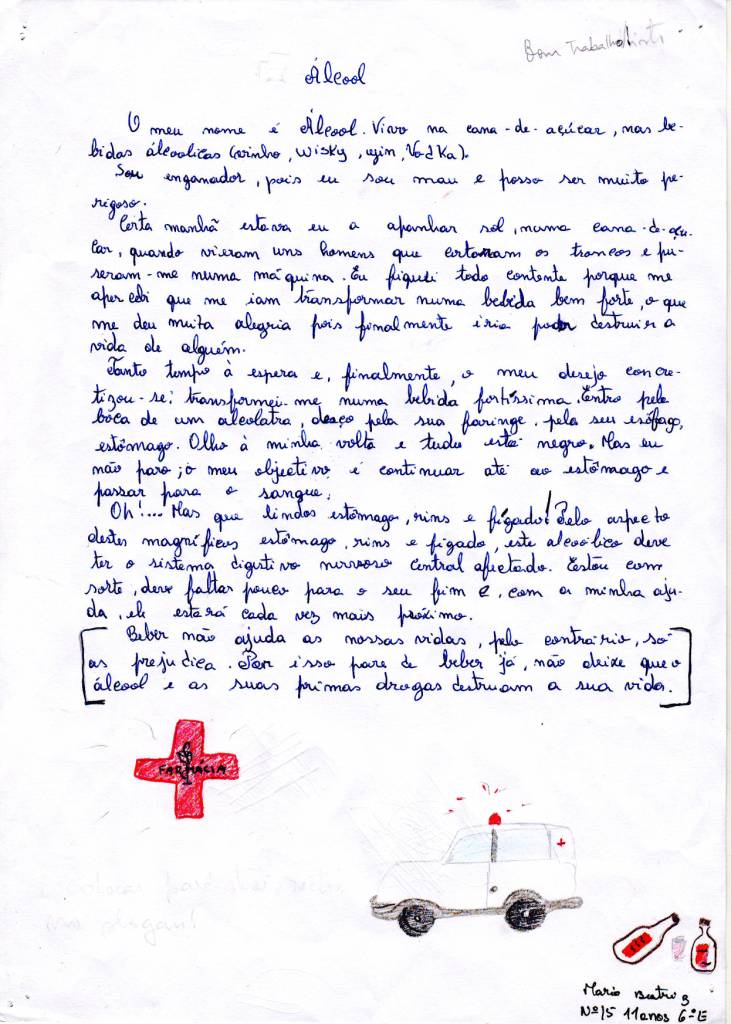 Bom Trabalho!
Álcool
O meu nome é Álcool. Vivo na cana-de-açúcar, nas be-
bidas álcoolicas (vinho, Wisky, gin, Vodka).
Sou enganador, pois eu sou mau e posso ser muito pe-
rigoso.
Certa manhã estava eu a apanhar sol, numa cana-de-açu-
car, quando vieram uns homens que cortaram os troncos e pu-
seram-me numa máquina. Eu fiquei todo contente porque me
apercebi que me iam transformar numa bebida bem forte, o que
me deu muita alegria pois finalmente iria poder destruir a
vida de alguém.
Tanto tempo à espera e, finalmente, o meu desejo concre-
tizou-se: transformei-me numa bebida fortíssima. Entro pela
boca de um alcolatra, desço pela sua faringe, pela seu esôfago,
estômago. Olho à minha volta e tudo está negro. Mas eu
não paro; o meu objectivo é continuar até ao estômago e
passar para o sangue.
Oh!... Mas que lindos estômago, rins e fígado! Pelo aspecto
destes magníficos estômago, rins e fígado, este alcoólico deve
ter o sistema digestivo nervoso central afectado. Estou com
sorte, deve faltar pouco para o seu fim e, com a minha aju-
da, ele estará cada vez mais próximo.
[Beber não ajuda as nossas vidas, pelo contrário, só
as prejudica. Por isso pare de beber já, não deixe que o
álcool e as suas primas drogas destruam a sua vida.]
FARMÁCIA
colocar para
slogan!
Maria Beatriz
Nº15 11anos 6ºE